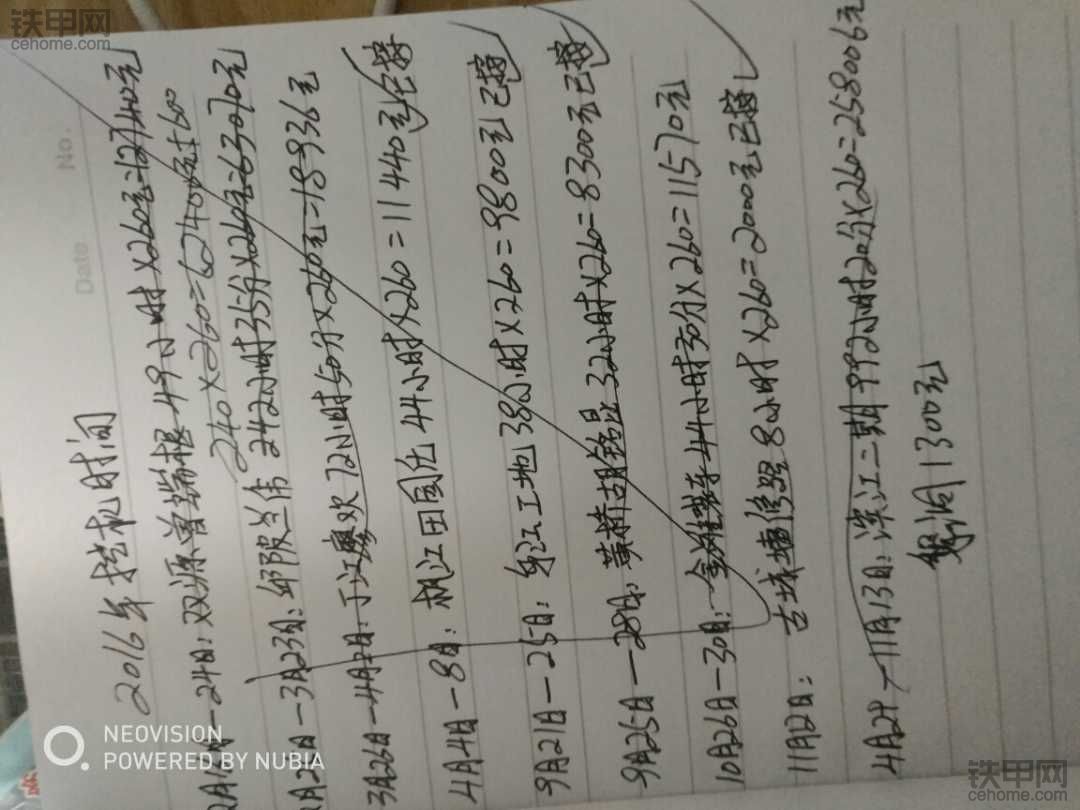 铁甲网
cehome.com
No.
Date
2016年挖机时间
月1日—24日：双源曾端根 49小时×260元=12740元
240×260=62400元+600
月2日—3月23日：邱陂兰伟 242小时35分×260元=63070元
3月26日—4月2日：于江 欢 72小时50分×260元=18936元
4月4日—8日：枧江田园先 44小时×260=11440元已接
9月21日—25日：工地38小时×260=9800元已接
9月26日—28日：黄桥胡铭星 32小时×260=8300元已接
10月26日—30日：金洋装车44小时30分×260=11570元
11月2日：古城墙修路 8小时×260=2000元已接
4月24—11月13日：滨江二期 992小时20分×260=258006元
1300元
NEOVISION
POWERED BY NUBIA
铁甲网
cehome.com